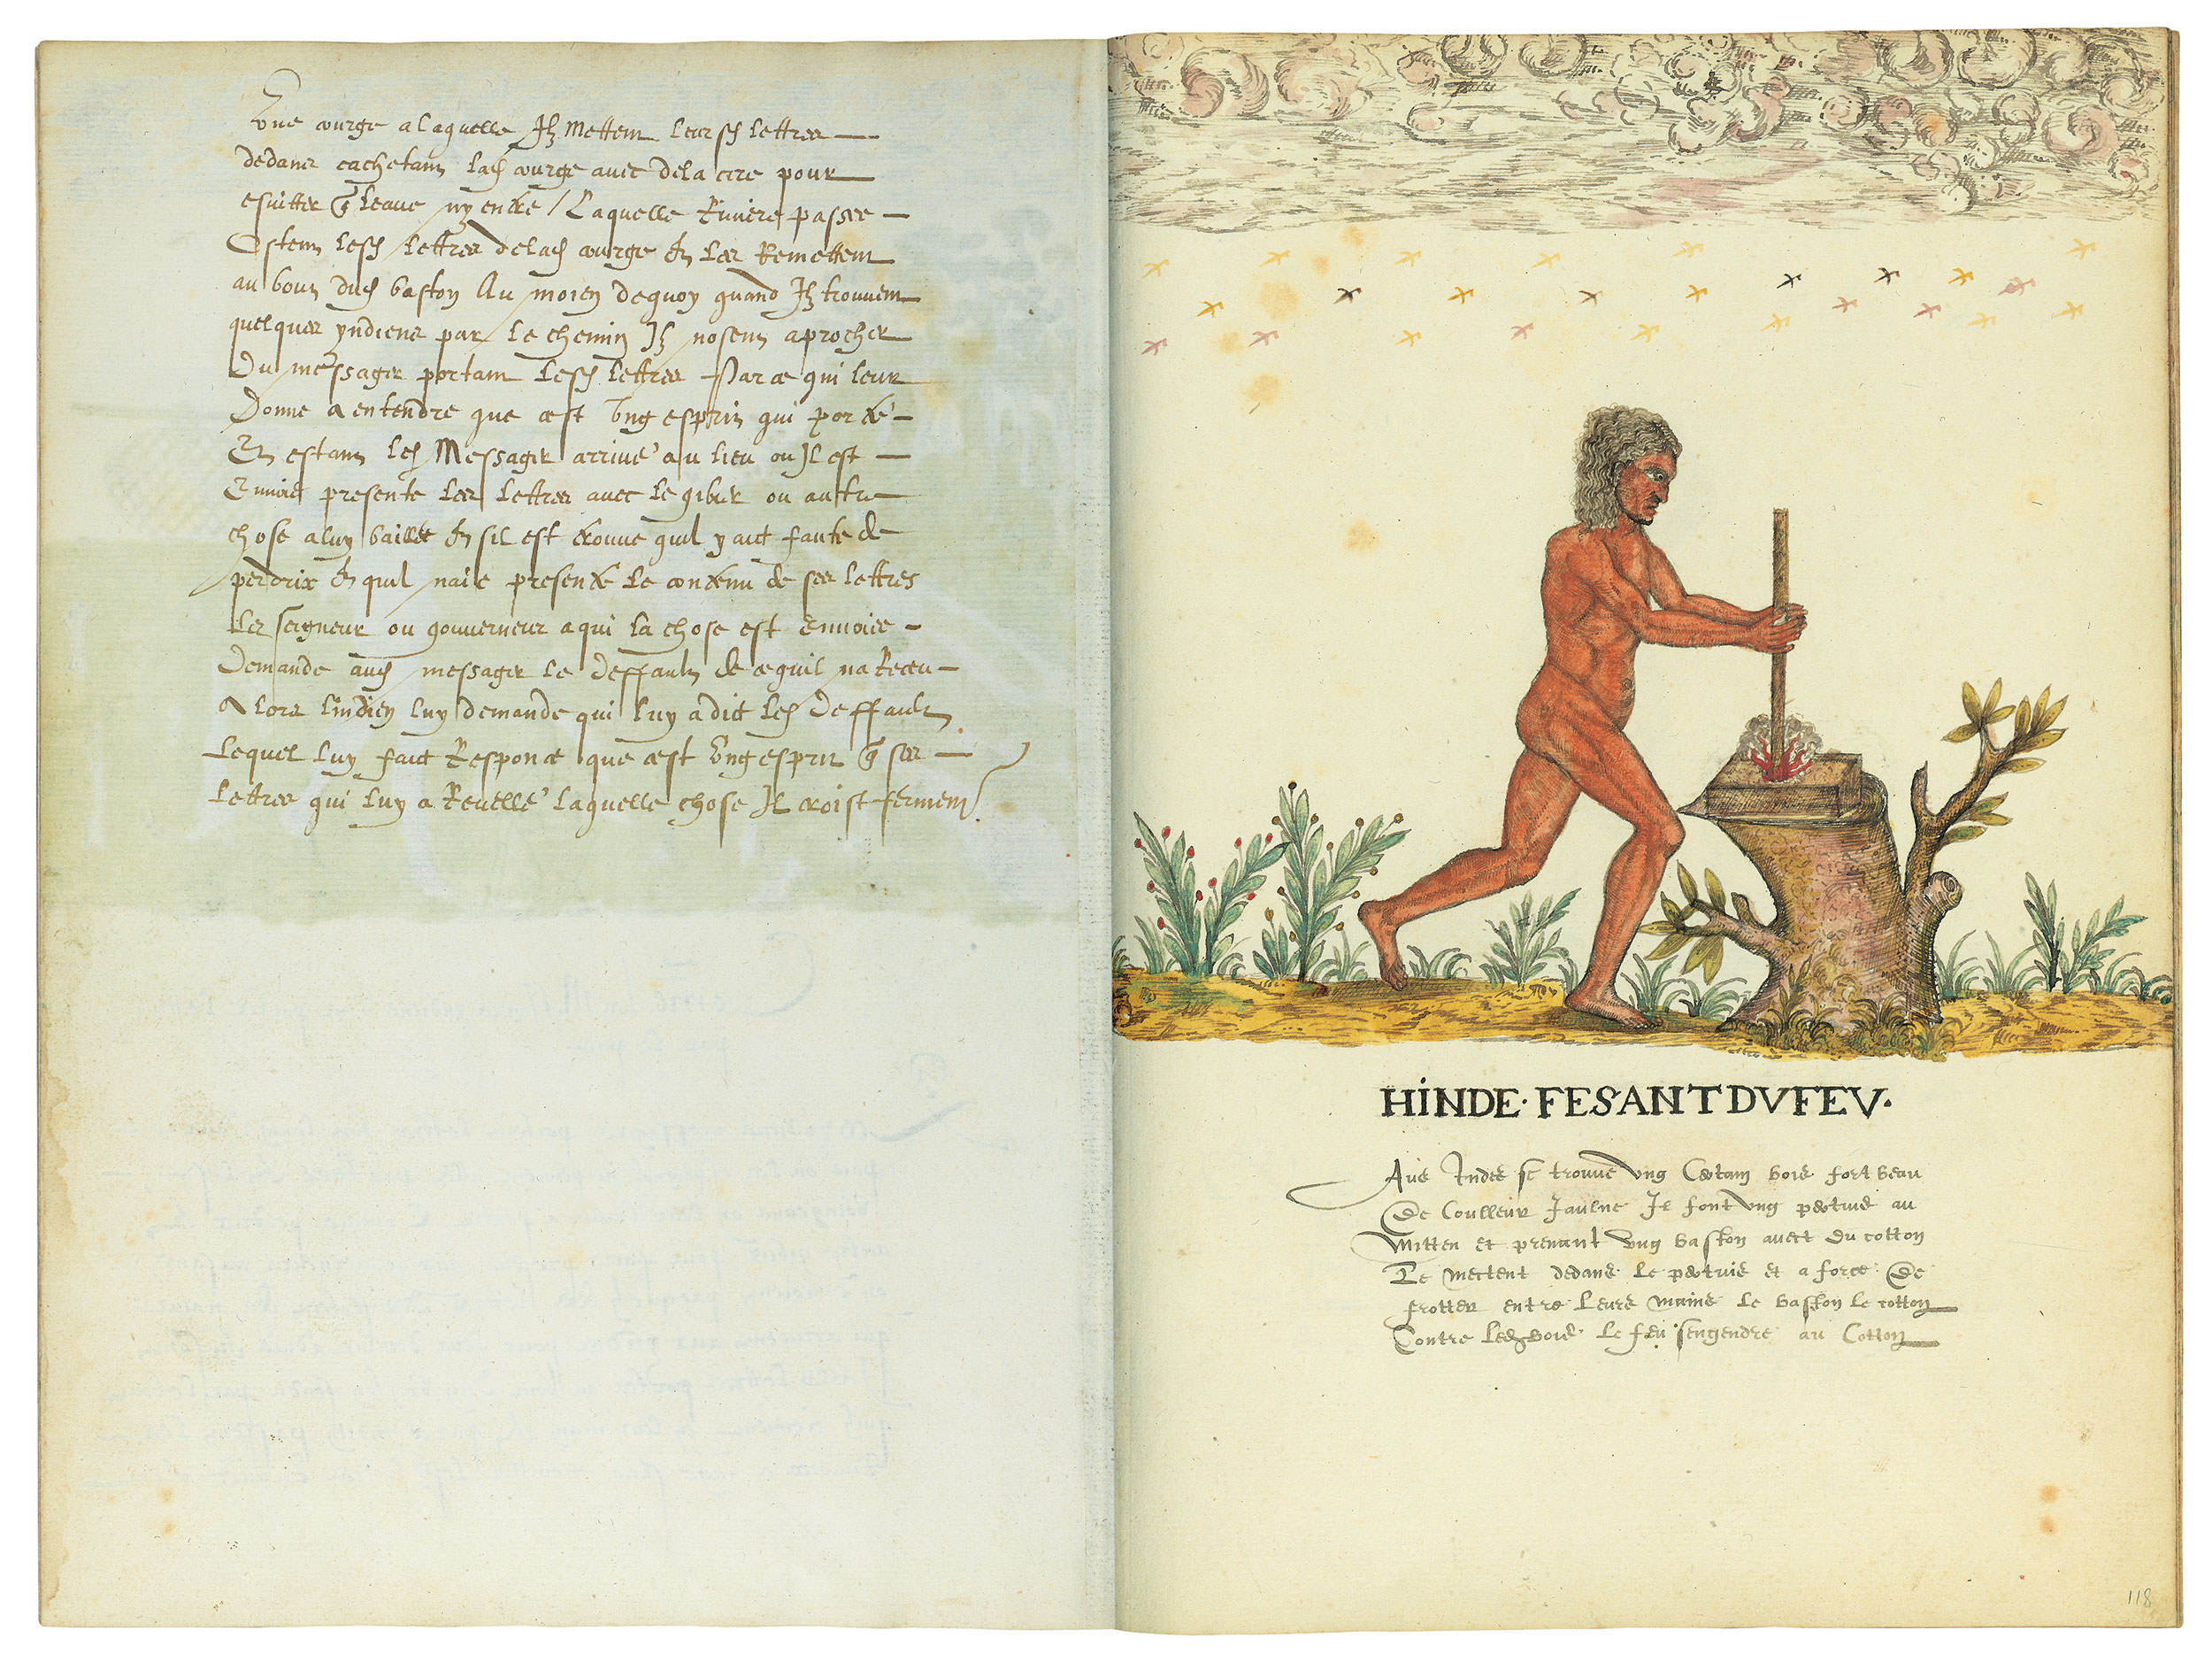 Vne courge a laquelle Ilz Mettent leursd lettres
dedans cachetant lad courge auec de la cire pour
esuitter q̃ leaue ny entre / Laquelle Riuiere passee
Ostent lesd lettres delad courge & les Remettent
au bout dud baston Au moien dequoy quand Ilz trouuent
quelques yndiens par le chemin Ilz nosent aprocher
Du messager portant lesd lettres Par ce qui leur
Donne a entendre que cest Vng esprit qui porte
Et estant led Messager arriué au lieu ou Il est
Enuoié presente les lettres auec le gibier ou autre
chose a luy baillée & sil est trouue quil y aict faute de
perdrix & quil naie presenté le contenu de ses lettres
Le seigneur ou gouuerneur a qui la chose est Enuoiee
Demande aud messager le deffault de ce quil na Receu
Alors lindien luy demande qui luy a dict led deffault
Lequel luy faict Responce que cest Vng esprit q̃ ses
Lettres qui luy a Reuellé laquelle chose Il croist fermemt
HINDE·FESANT DV FEV·
Aus Indes se trouue vng Certain bois fort beau
De Coulleur Jaulne Il font vng pertuis au
Mitten et prenant vng baston auect du cotton
Le mectent dedans le pertuis et a force De
frotter entre leurs mains le baston le cotton
Contre led bois le feu sengendre au Cotton
118